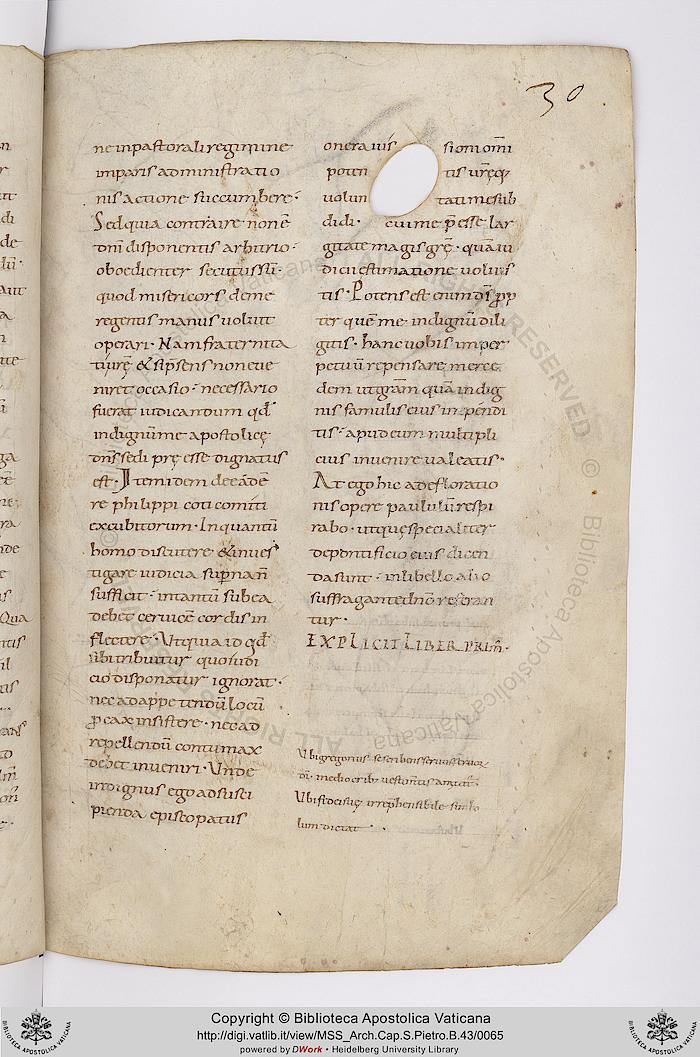 30
ne inpastorali regimine
imparis administratio
nis actione succumbere·
Sed quia contraire nonẽ
dn̄i disponentis arbitrio·
oboedienter secutussũ·
quod misericors deme
regentis manus voluit
operari· Nam fraternita
ti vrẽ & si p̄sens non eve
niret occasio· necessario
fuerat iudicandum qđ
indignũ me apostolicę
dn̄s sedi pręesse dignatus
est· Item idem de eadẽ
re philippi coti comiti
excubitorum· Inquantũ
homo discutere & inves
tigare iudicia sup̄nan̄
sufficit· intantũ sub ea
debet cervicẽ cordis in
flectere· Ut quia id qđ
ubi tribuitur quo iudi
cio disponatur ignorat·
nec adappetendũ locũ
ꝓcax insistere· nec ad
repellendũ contumax
debet inveniri· Unde
indignus ego ad susci
pienda episcopatus
onera vis sioni om̄i
poten tis vr̄ęqꝫ
volun tati me sub
didi· cui me p̄esse lar
gitate magis grę· quã iu
dicii estimatione voluis
tis· Potens est enim dſ̄ ꝓp
ter quẽ me indignũ dili
gitis· hanc vobis in per
petuũ repensare merce
dem ut grãm quã indig
nis famulis eius inpendi
tis· apud eum multipli
cius invenire valeatis·
At ego hic a defloratio
nis opere paululũ respi
rabo· utique specialiter
de pontificio eius dicen
da sunt· in libello alio
suffragante dn̄o referan
tur·
EXPLICIT LIBER PRIM̄·
Ubi gregorius se scribons servus servor
dī· mediocrib;
Ubi irrephensibile simbo
lum dictat·
Copyright © Biblioteca Apostolica Vaticana
http://digi.vatlib.it/view/MSS_Arch.Cap.S.Pietro.B.43/0065
powered by DWork • Heidelberg University Library